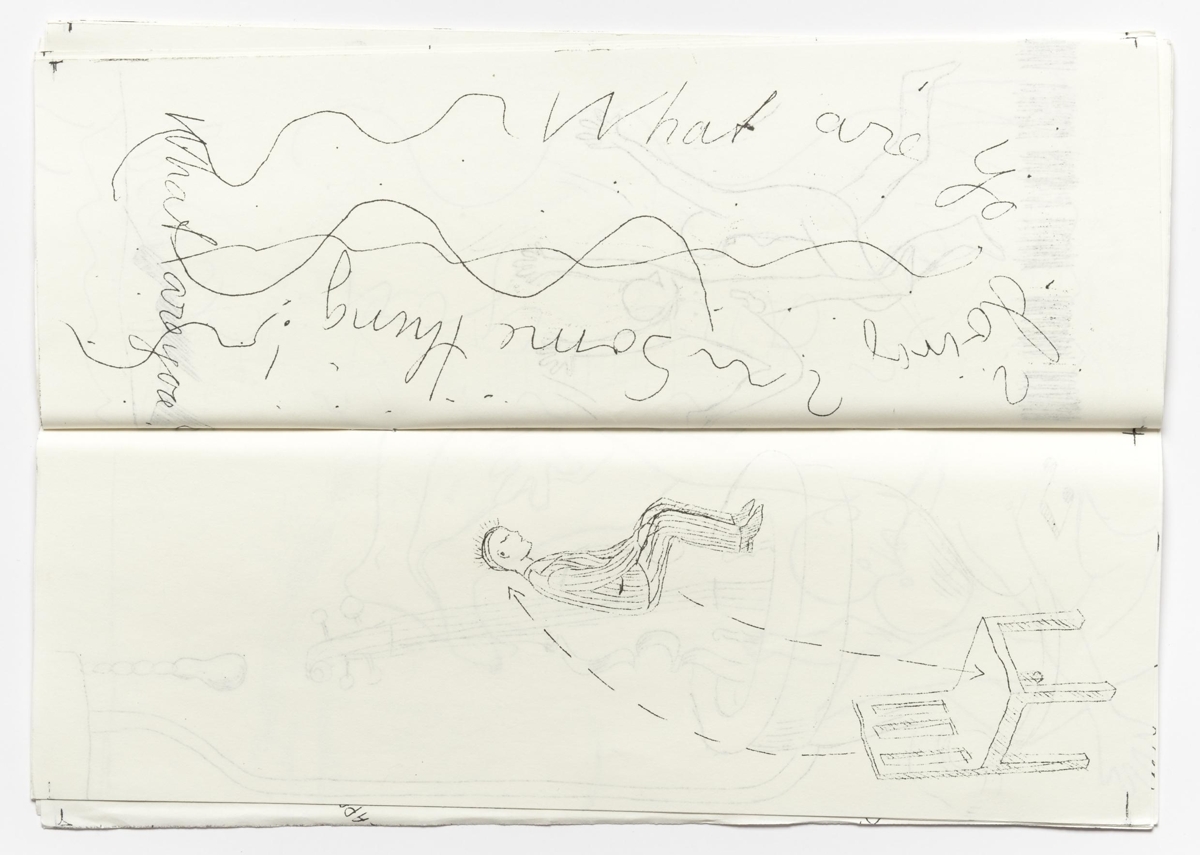 What are
yo
doing
In Some thing
What are you